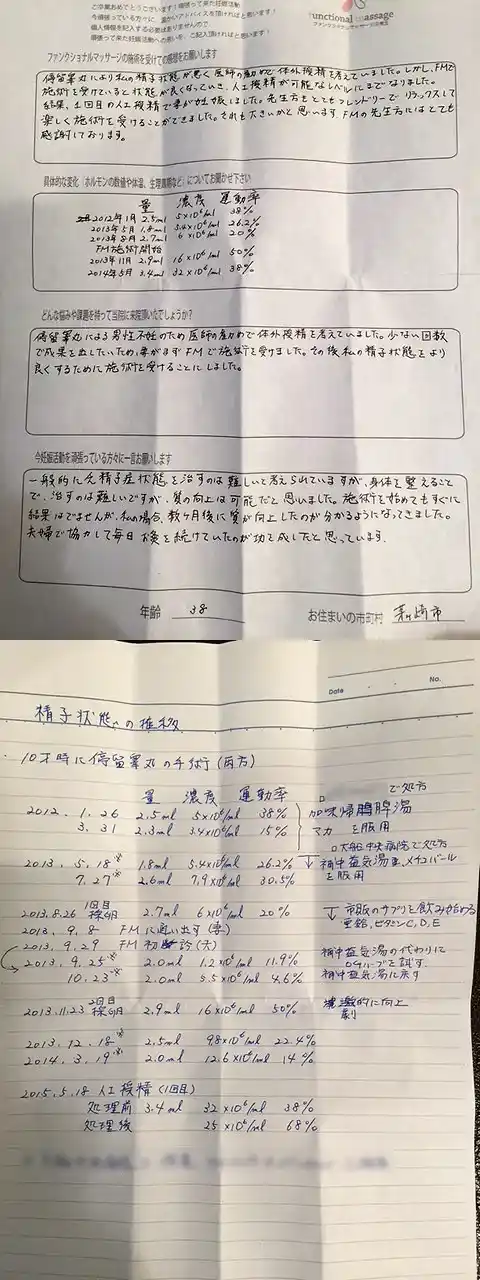 ご卒業おめでとうございます！頑張って来た妊娠活動
今頑張っている方々に、温かいアドバイスを頂ければと思います！
個人情報を記入する必要はありませんので
頑張って来た妊娠活動への思いを、ご記入頂ければと思います！
Functional Massage
ファンクショナルマッサージ治療室
ファンクショナルマッサージの施術を受けての感想をお願いします
停留睾丸により私の精子状態が悪く医師の勧めで体外授精を考えていました。しかし、FMで
施術を受けていると状態が良くなっていき、人工授精が可能なレベルにまでなりました。
結果、1回目の人工授精で妻が妊娠しました。先生方もとてもフレンドリーでリラックスして
楽しく施術を受けることができました。それも大きいかと思います。FMの先生方にはとても
感謝しております。
具体的な変化（ホルモンの数値や体温、生理周期など）についてお聞かせ下さい
量 濃度 運動率
2012年1月 2.5ml 5×10⁶/ml 38%
2013年5月 1.8ml 5.4×10⁶/ml 26.2%
2013年8月 2.7ml 6×10⁶/ml 20%
FM施術開始
2013年11月 2.9ml 16×10⁶/ml 50%
2014年5月 3.4ml 32×10⁶/ml 38%
どんな悩みや課題を持って当院に来院頂いたでしょうか？
停留睾丸による男性不妊のため医師の勧めで体外授精を考えていました。少ない回数
で成果を出したいため、妻がまずFMで施術を受けました。その後私の精子状態をより
良くするために施術を受けることにしました。
今妊娠活動を頑張っている方々に一言お願いします
一般的に乏精子症状態を治すのは難しいと考えられていますが、身体を整えること
で、治すのは難しいですが、質の向上は可能だと思いました。施術を始めてもすぐに
結果はでませんが、私の場合、数ヶ月後に質が向上したのが分かるようになってきました。
夫婦で協力して毎日お灸を続けていたのが功を成したと思っています。
年齢 38 お住まいの市町村 茅ヶ崎市
Date No.
精子状態の推移
・10才時に停留睾丸の手術（両方）
量 濃度 運動率
で処方
2012. 1. 26 2.5ml 5×10⁶/ml 38% 加味帰脾湯
3. 31 2.3ml 3.4×10⁶/ml 15% マカ を服用
大船中央病院で処方
2013. 5. 18※ 1.8ml 5.4×10⁶/ml 26.2% ↓補中益気湯、メチコバール
7. 27※ 2.6ml 7.9×10⁶/ml 30.5% を服用
1回目
2013. 8. 26 採卵 2.7ml 6×10⁶/ml 20% ↓市販のサプリを飲み始める
2013. 9. 8 FMに通い出す（妻） 亜鉛、ビタミンC, D, E
2013. 9. 29 FM初診（夫）
2013. 9. 25※ 2.0ml 1.2×10⁶/ml 11.9% 補中益気湯の代わりに
グループを試す
10. 23※ 2.0ml 5.5×10⁶/ml 4.6% 補中益気湯に戻す
2回目
2013. 11. 23 採卵 2.9ml 16×10⁶/ml 50% 劇的に向上
2013. 12. 18※ 2.5ml 9.8×10⁶/ml 22.4%
2014. 3. 19※ 2.0ml 12.6×10⁶/ml 14%
2015. 5. 18 人工授精（1回目）
処理前 3.4ml 32×10⁶/ml 38%
処理後 25×10⁶/ml 68%